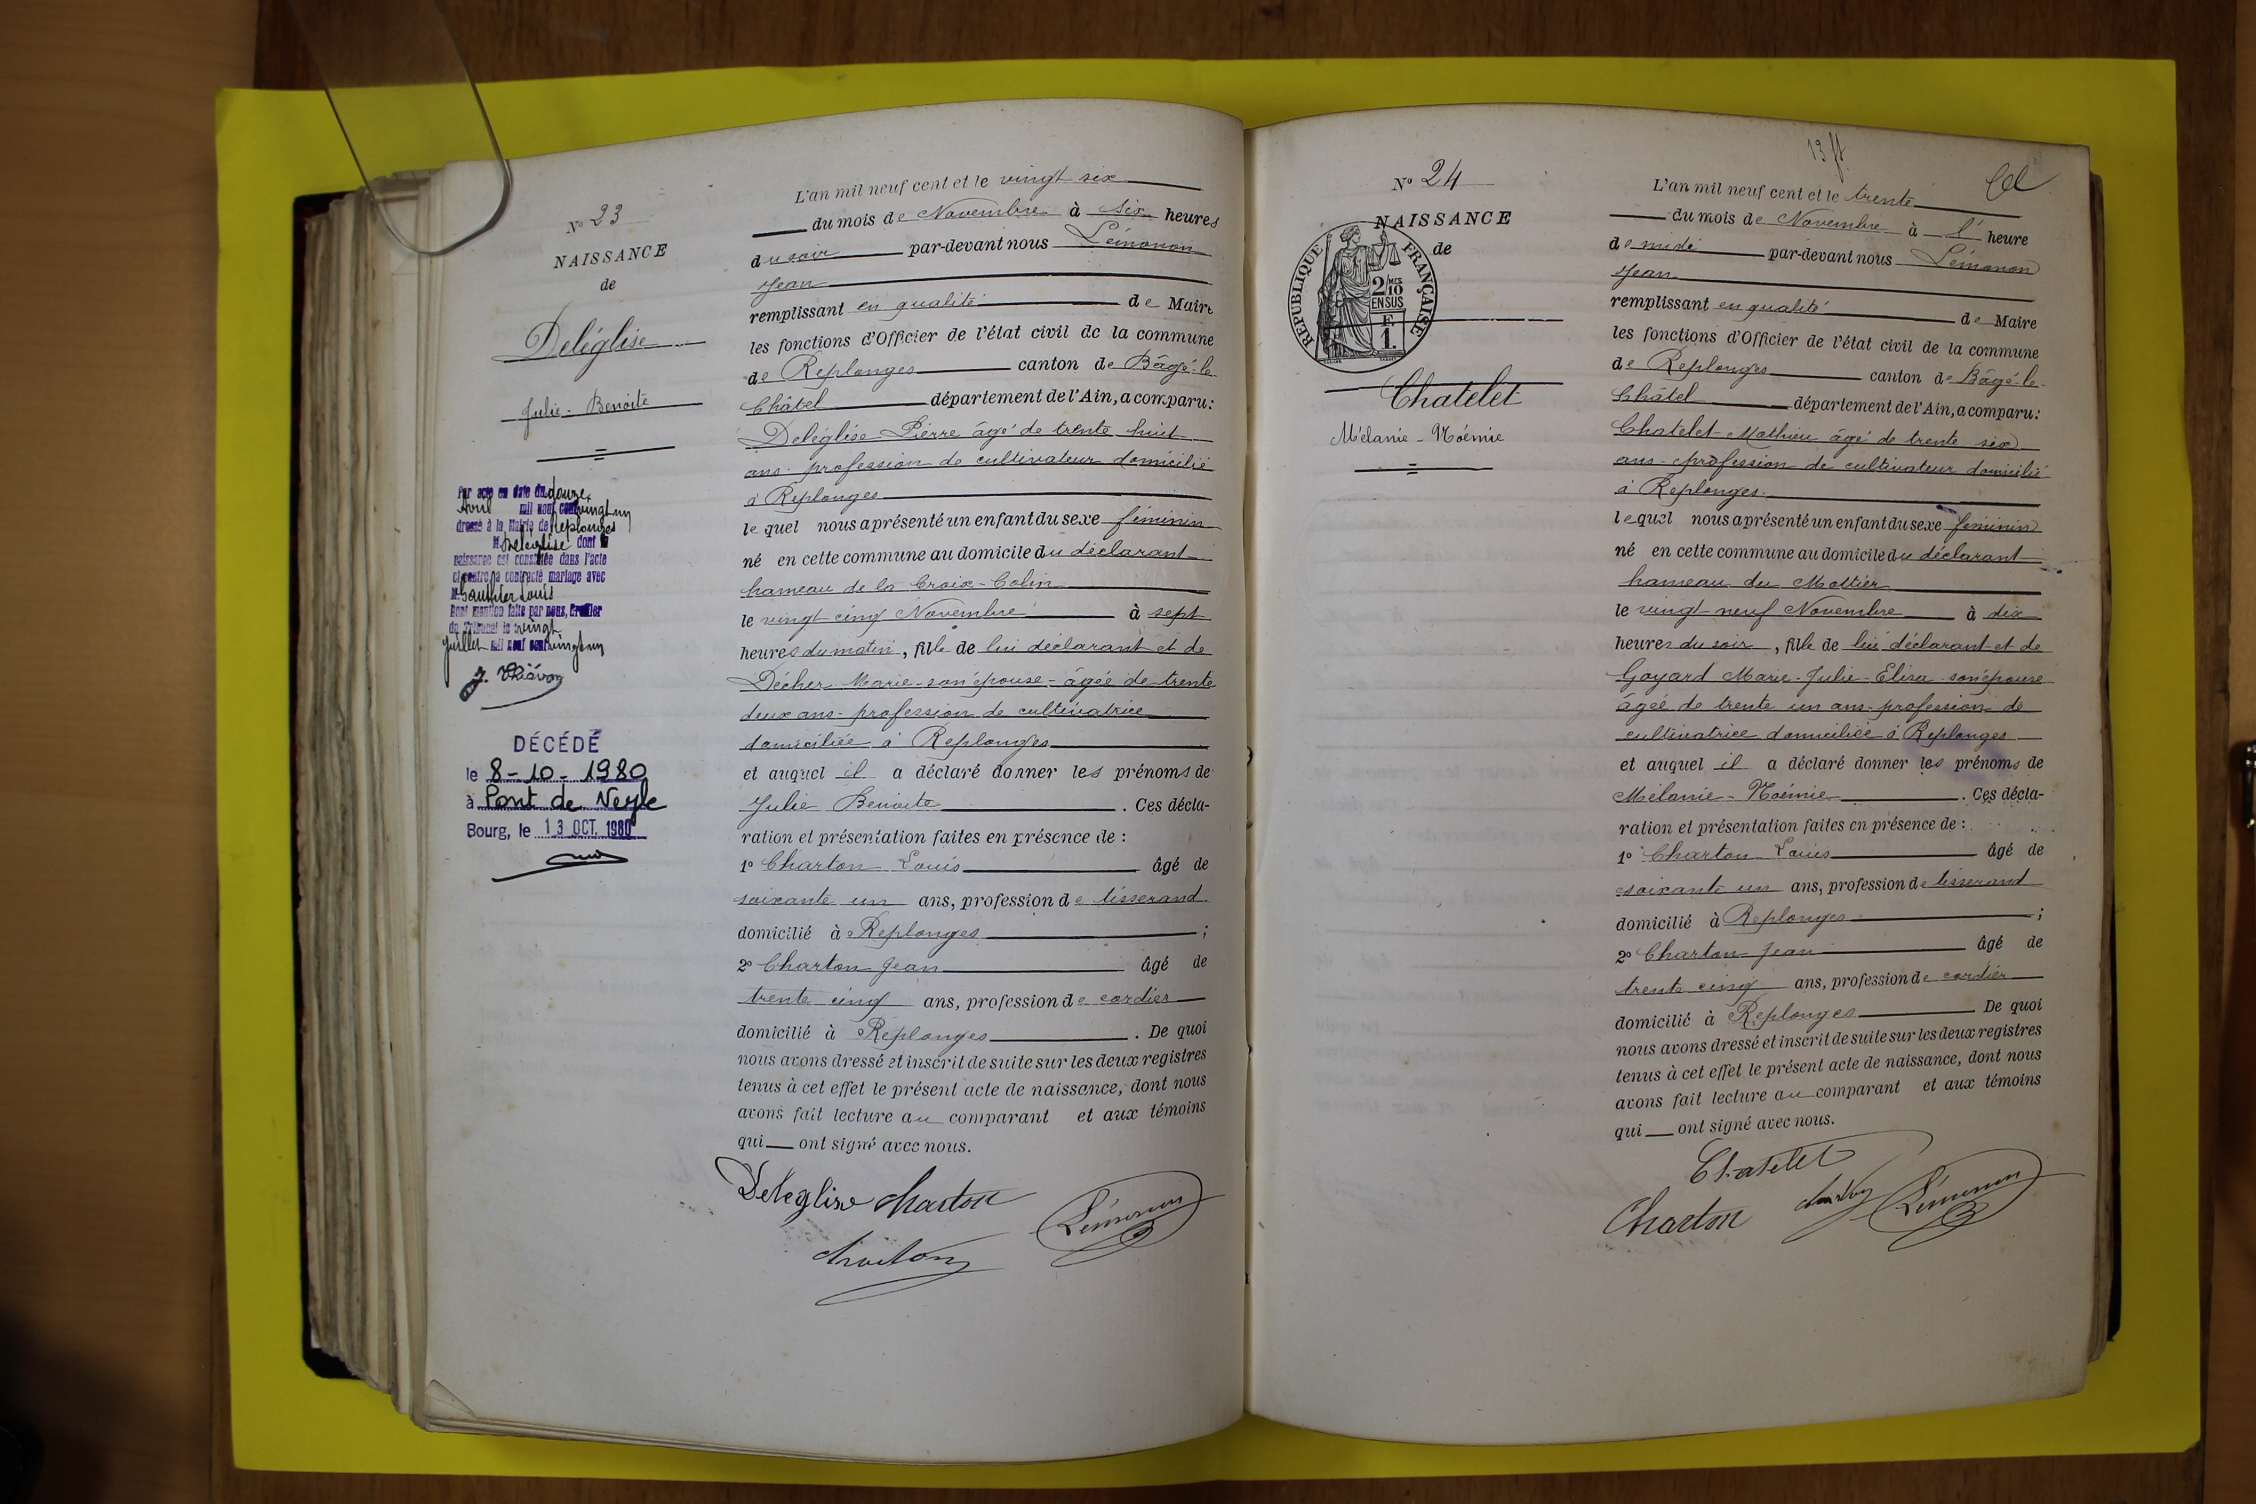 N° 23
NAISSANCE
de
Deléglise
Julie - Benoite
Par acte en date du douze
Avril mil neuf cent vingt un
dressé à la Mairie de Replonges
M. Deléglise dont la
naissance est constatée dans l'acte
ci-contre a contracté mariage avec
M. Gauthier Louis
Dont mention faite par nous, Greffier
du Tribunal le vingt
juillet mil neuf cent vingt un
DÉCÉDÉ
le 8-10-1980
à Pont de Veyle
Bourg, le 13 OCT. 1980
L'an mil neuf cent et le vingt six
du mois de Novembre à six heures
du soir par-devant nous Lémonon
Jean
remplissant en qualité de Maire
les fonctions d'Officier de l'état civil de la commune
de Replonges canton de Bâgé-le-
Châtel département de l'Ain, a comparu:
Deléglise Pierre âgé de trente huit
ans - profession de cultivateur domicilié
à Replonges
lequel nous a présenté un enfant du sexe féminin
né en cette commune au domicile du déclarant
hameau de la Croix-Colin
le vingt cinq Novembre à sept
heures du matin, fille de lui déclarant et de
Décher Marie - son épouse - âgée de trente
deux ans - profession de cultivatrice
domiciliée à Replonges
et auquel il a déclaré donner les prénoms de
Julie Benoite. Ces décla-
ration et présentation faites en présence de :
1° Charton Louis âgé de
soixante un ans, profession de tisserand
domicilié à Replonges ;
2° Charton Jean âgé de
trente cinq ans, profession de cordier
domicilié à Replonges. De quoi
nous avons dressé et inscrit de suite sur les deux registres
tenus à cet effet le présent acte de naissance, dont nous
avons fait lecture au comparant et aux témoins
qui ont signé avec nous.
Deleglise Charton
Lémonon
Charton
N° 24
NAISSANCE
de
RÉPUBLIQUE FRANÇAISE
2/10
EN SUS
1.
Chatelet
Mélanie - Noémie
L'an mil neuf cent et le trente
du mois de Novembre à l' heure
de midi par-devant nous Lémonon
Jean
remplissant en qualité de Maire
les fonctions d'Officier de l'état civil de la commune
de Replonges canton de Bâgé-le-
Châtel département de l'Ain, a comparu:
Chatelet Mathieu âgé de trente six
ans - profession de cultivateur domicilié
à Replonges
lequel nous a présenté un enfant du sexe féminin
né en cette commune au domicile du déclarant
hameau du Mottier
le vingt neuf Novembre à dix
heures du soir, fille de lui déclarant et de
Goyard Marie-Julie-Elisa son épouse
âgée de trente un ans - profession de
cultivatrice domiciliée à Replonges
et auquel il a déclaré donner les prénoms de
Mélanie - Noémie. Ces décla-
ration et présentation faites en présence de :
1° Charton Louis âgé de
soixante un ans, profession de tisserand
domicilié à Replonges ;
2° Charton Jean âgé de
trente cinq ans, profession de cordier
domicilié à Replonges. De quoi
nous avons dressé et inscrit de suite sur les deux registres
tenus à cet effet le présent acte de naissance, dont nous
avons fait lecture au comparant et aux témoins
qui ont signé avec nous.
Chatelet
Charton Lémonon